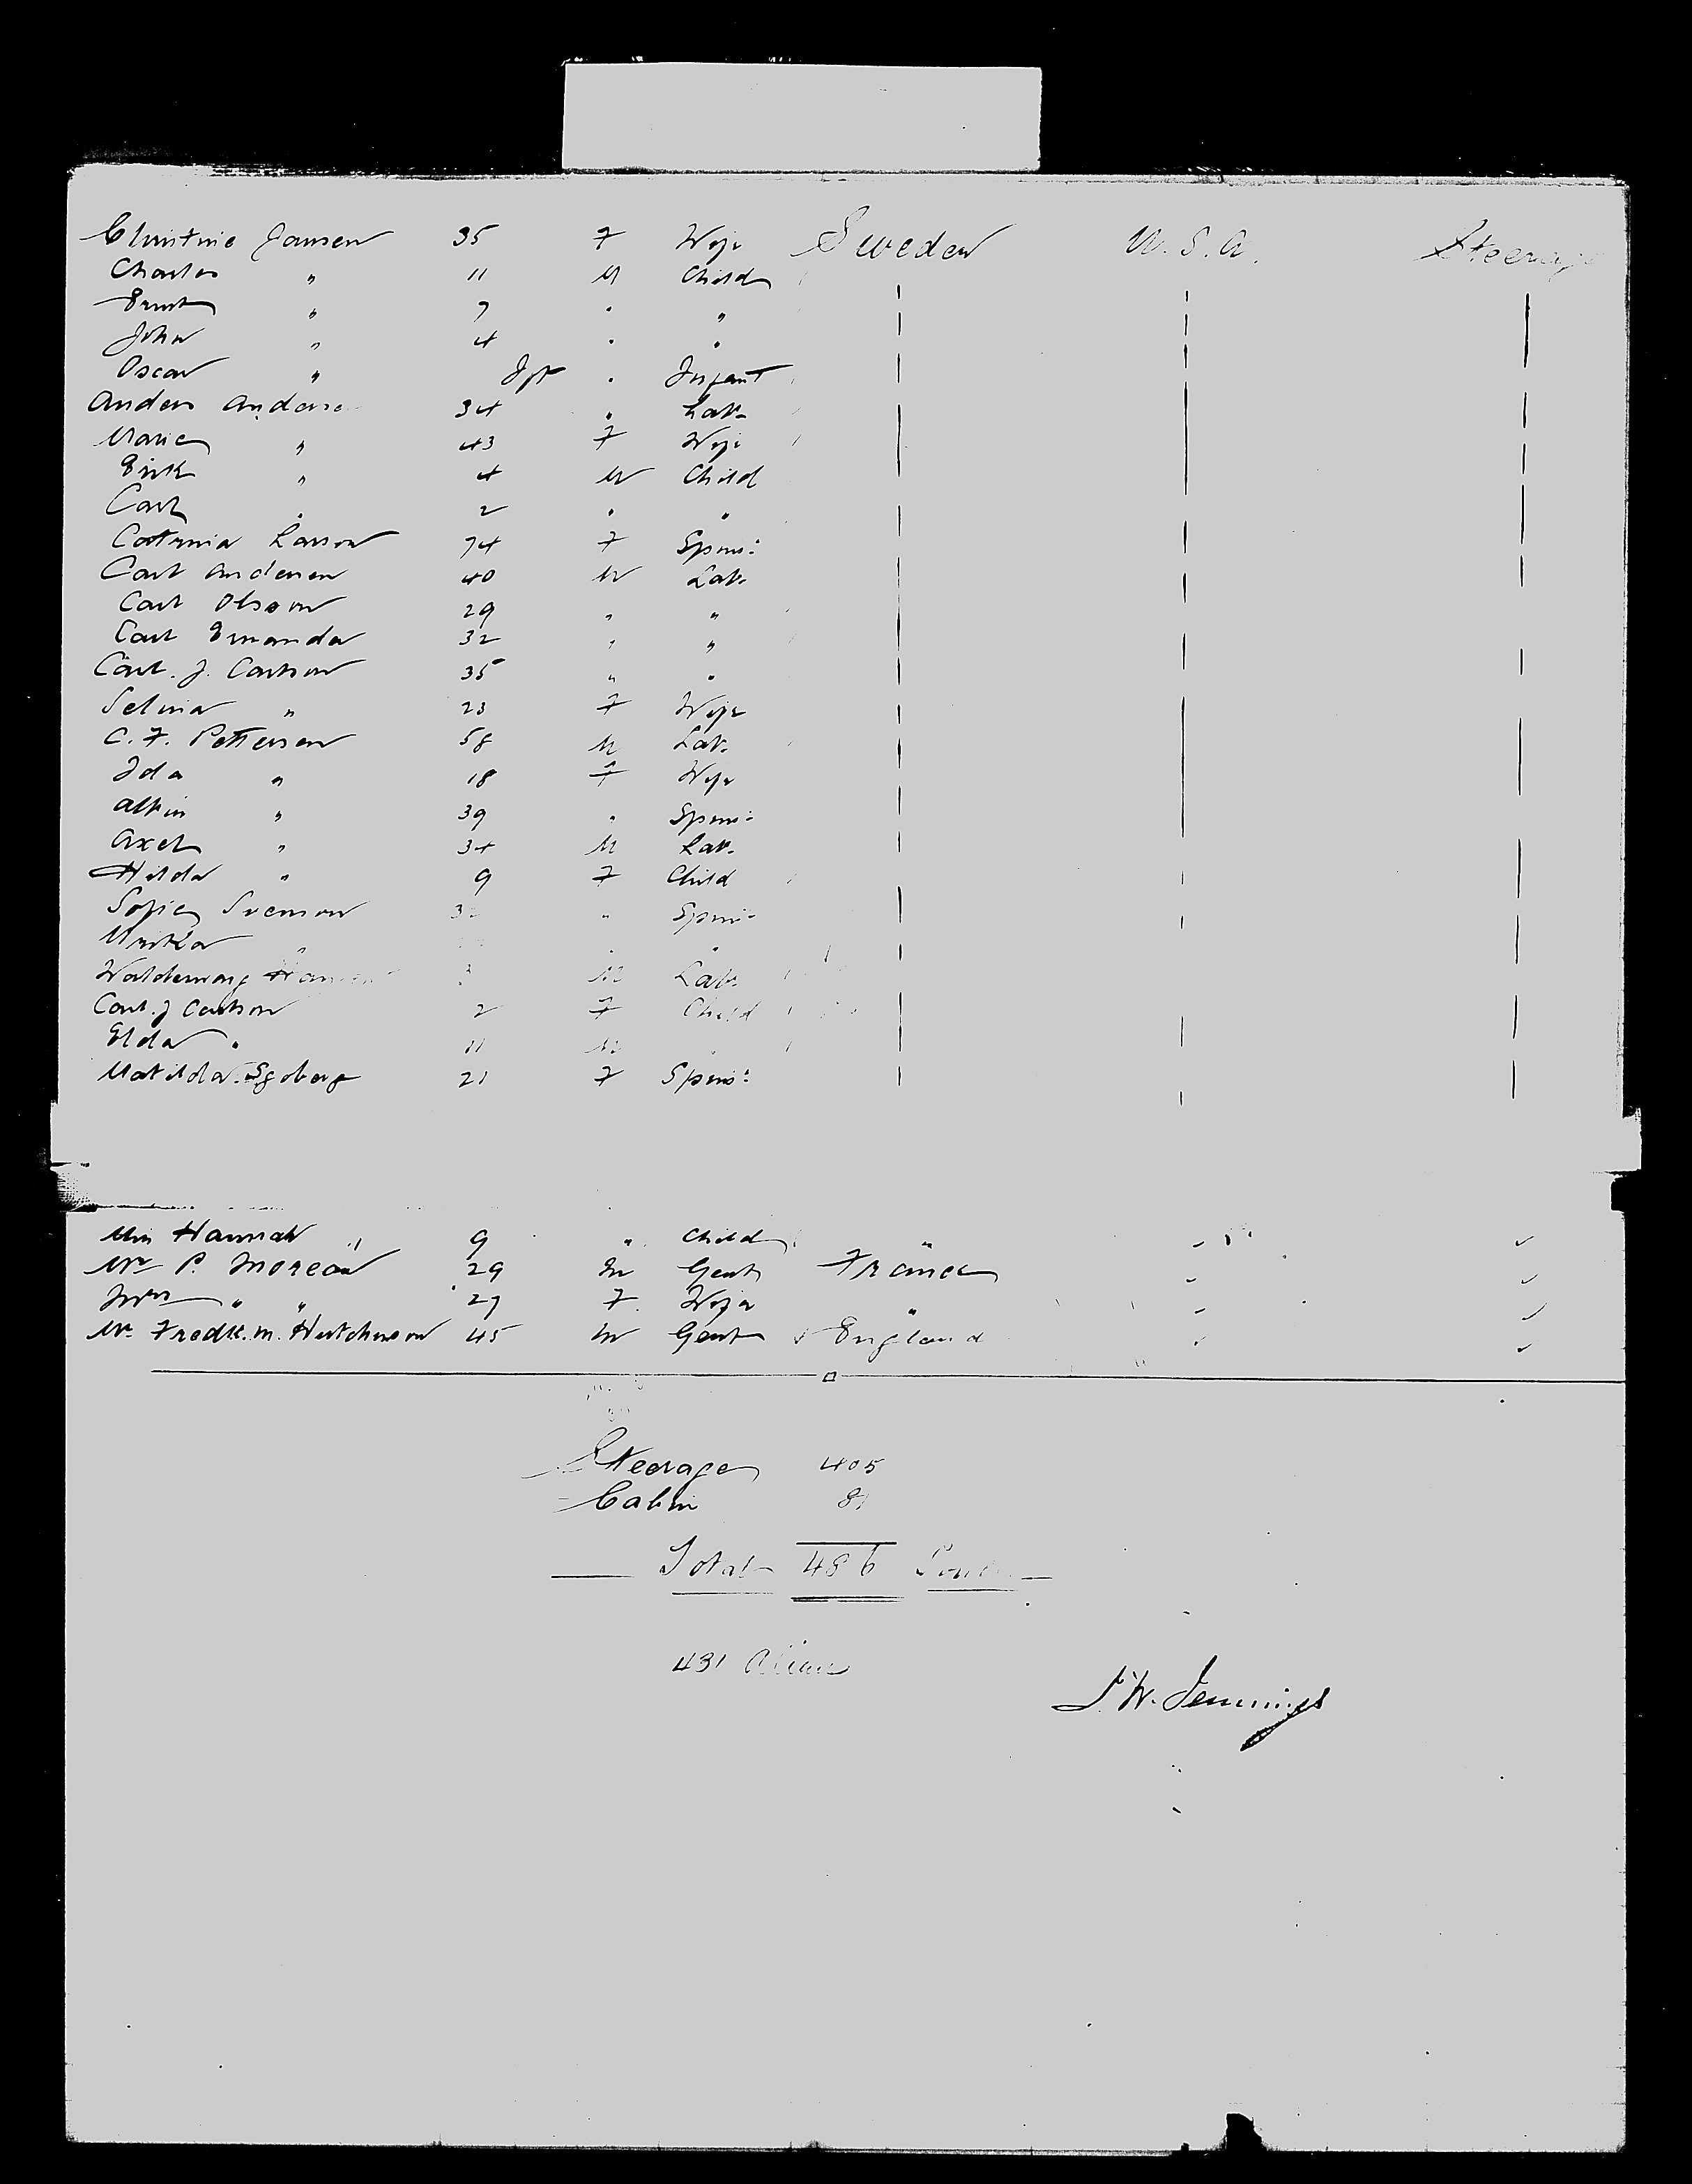 Christine Jansen 35 F Wife Sweden U.S.A. Steerage
Charles " 11 M Child
Ernst " 7 " "
John " 4 " "
Oscar " Inft " Infant
Anders Anderse 34 " Lab.
Maria " 43 F Wife
Erik " 4 M Child
Carl " 2 " "
Catrina Larson 74 F Spins:
Carl Andersen 40 M Lab.
Carl Olsson 29 " "
Carl 32 " "
Carl. J. Carlson 35 " "
Selma " 23 F Wife
C. F. Pettersen 58 M Lab.
Ida " 18 F Wife
Albin " 39 " Spins:
Axel " 34 M Lab.
Hilda " 9 F Child
Sofia Svenson " Spins:
" " "
M Lab.
Carl. J Carlson 2 F Child
Elda " 11 M "
Matilda 21 F Spins:
Miss Hannah " 9 " Child "
Mr P. Moreau 29 M Gent France
Mrs " " 27 F. Wife "
Mr. Fredk. M. Hutchinson 45 M Gent England
Steerage 405
Cabin 81
Total 486 Souls
431 Aliens
Jennings